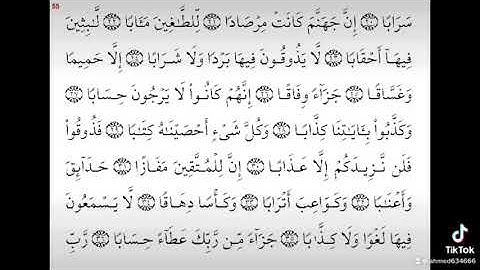 55
سَرَابًا ﴿٢٠﴾ إِنَّ جَهَنَّمَ كَانَتْ مِرْصَادًا ﴿٢١﴾ لِّلطَّٰغِينَ مَـَٔابًا ﴿٢٢﴾ لَّٰبِثِينَ
فِيهَآ أَحْقَابًا ﴿٢٣﴾ لَّا يَذُوقُونَ فِيهَا بَرْدًا وَلَا شَرَابًا ﴿٢٤﴾ إِلَّا حَمِيمًا
وَغَسَّاقًا ﴿٢٥﴾ جَزَآءً وِفَاقًا ﴿٢٦﴾ إِنَّهُمْ كَانُوا۟ لَا يَرْجُونَ حِسَابًا ﴿٢٧﴾
وَكَذَّبُوا۟ بِـَٔايَٰتِنَا كِذَّابًا ﴿٢٨﴾ وَكُلَّ شَىْءٍ أَحْصَيْنَٰهُ كِتَٰبًا ﴿٢٩﴾ فَذُوقُوا۟
فَلَن نَّزِيدَكُمْ إِلَّا عَذَابًا ﴿٣٠﴾ إِنَّ لِلْمُتَّقِينَ مَفَازًا ﴿٣١﴾ حَدَآئِقَ
وَأَعْنَٰبًا ﴿٣٢﴾ وَكَوَاعِبَ أَتْرَابًا ﴿٣٣﴾ وَكَأْسًا دِهَاقًا ﴿٣٤﴾ لَّا يَسْمَعُونَ
فِيهَا لَغْوًا وَلَا كِذَّٰبًا ﴿٣٥﴾ جَزَآءً مِّن رَّبِّكَ عَطَآءً حِسَابًا ﴿٣٦﴾ رَّبِّ
TikTok
ahmed634666